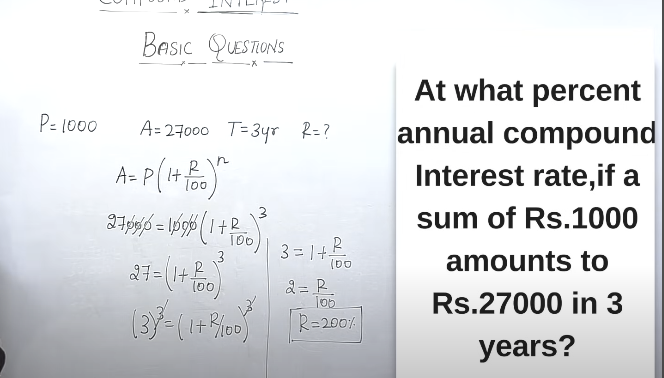 COMPOUND INTEREST
BASIC QUESTIONS
P=1000 A=27000 T=3yr R=?
A=P(1+R/100)^n
27000=1000(1+R/100)^3
27=(1+R/100)^3
(3)^3=(1+R/100)^3
3=1+R/100
2=R/100
R=200%
At what percent
annual compound
Interest rate,if a
sum of Rs.1000
amounts to
Rs.27000 in 3
years?